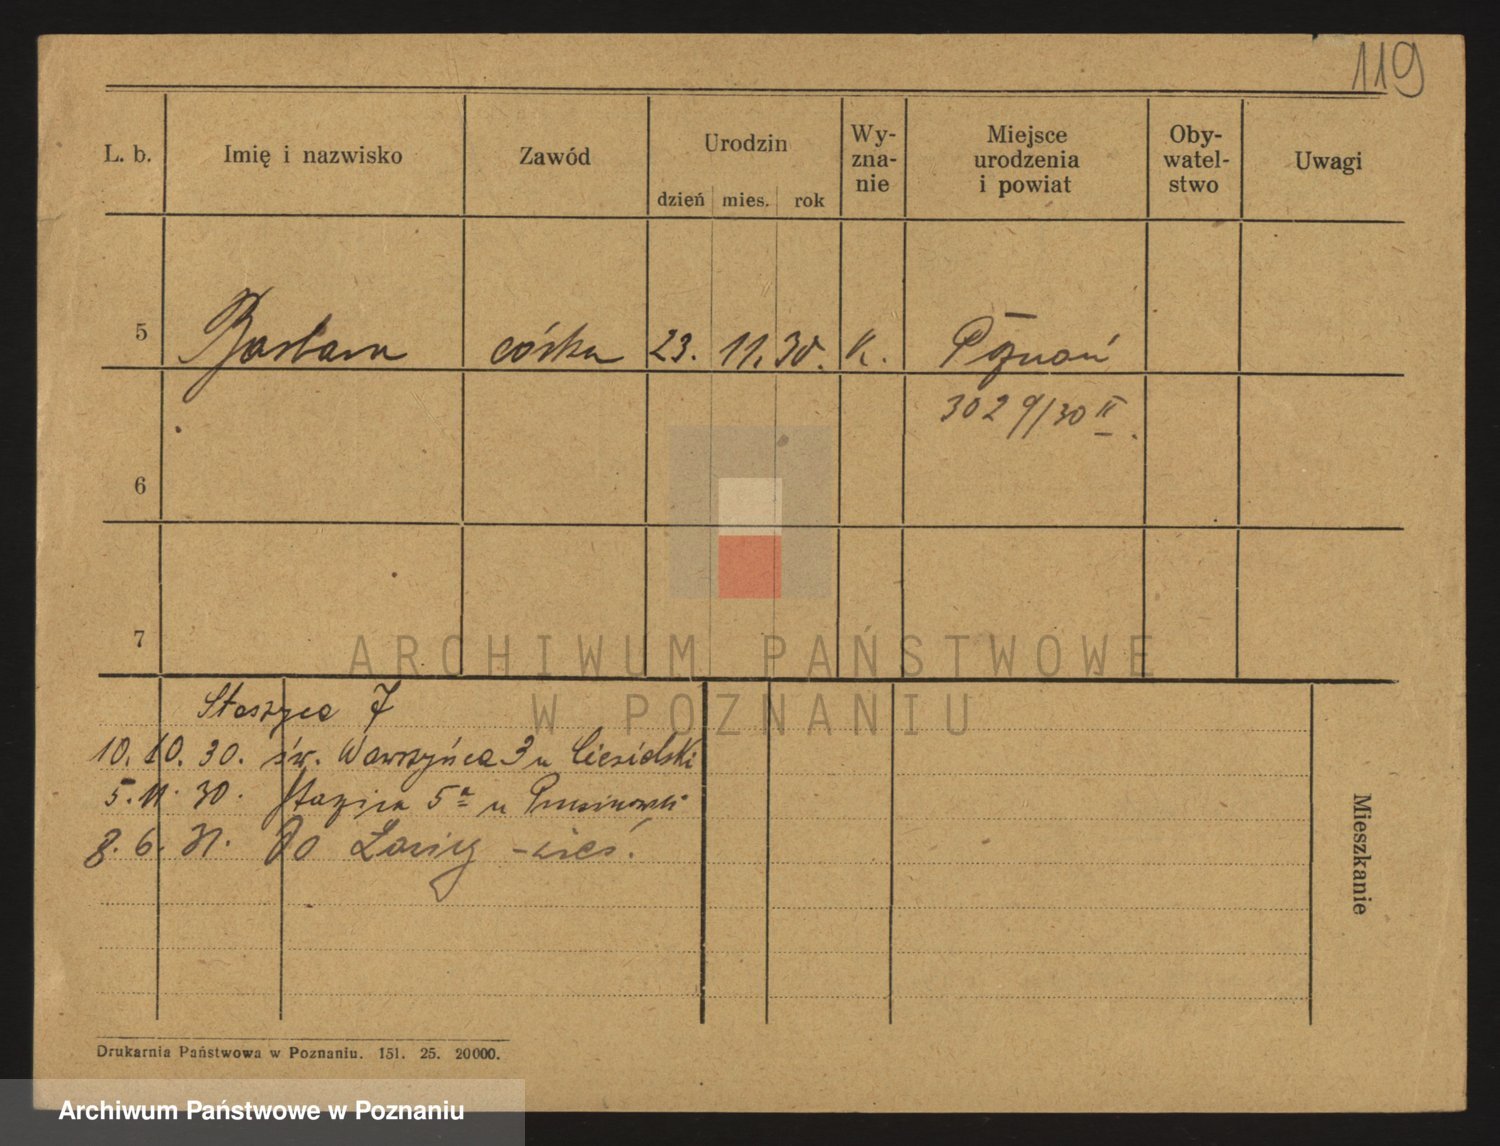 119
L. b. Imię i nazwisko Zawód Urodzin dzień mies. rok Wy-zna-nie Miejsce urodzenia i powiat Oby-watel-stwo Uwagi
5 Barbara córka 23. 11. 30. K. Poznań
3029/30 II
6
7
ARCHIWUM PAŃSTWOWE
W POZNANIU
Staszyca 7
10. 10. 30. św. Wawrzyńca 3 u Ciesielski
5. 11. 30. Stazica 5a u
8. 6. 31. Do - wieś.
Mieszkanie
Drukarnia Państwowa w Poznaniu. 151. 25. 20000.
Archiwum Państwowe w Poznaniu